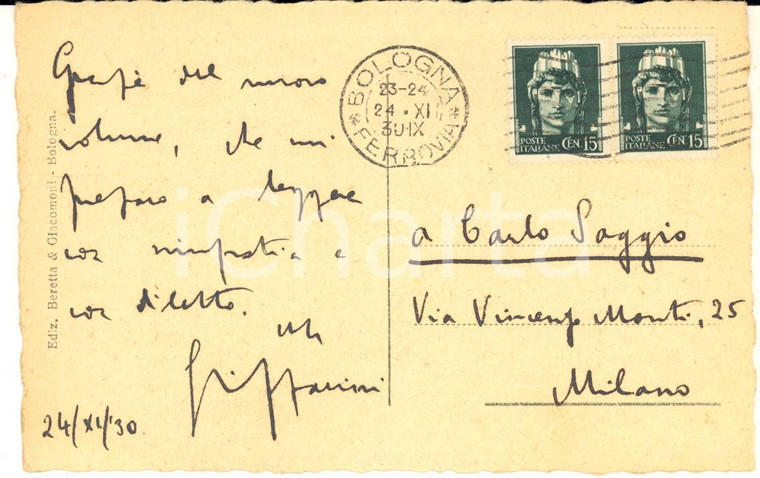 Grazie del nuovo
volume, che mi
preparo a leggere
con simpatia e
con diletto.
24/XI/30
Ediz. Beretta & Giacomoni - Bologna.
BOLOGNA
23-24
24 · XI
30 IX
FERROVIA
POSTE ITALIANE CEN. 15
POSTE ITALIANE CEN. 15
a Carlo Paggio
Via Vincenzo Monti, 25
Milano
iCharta